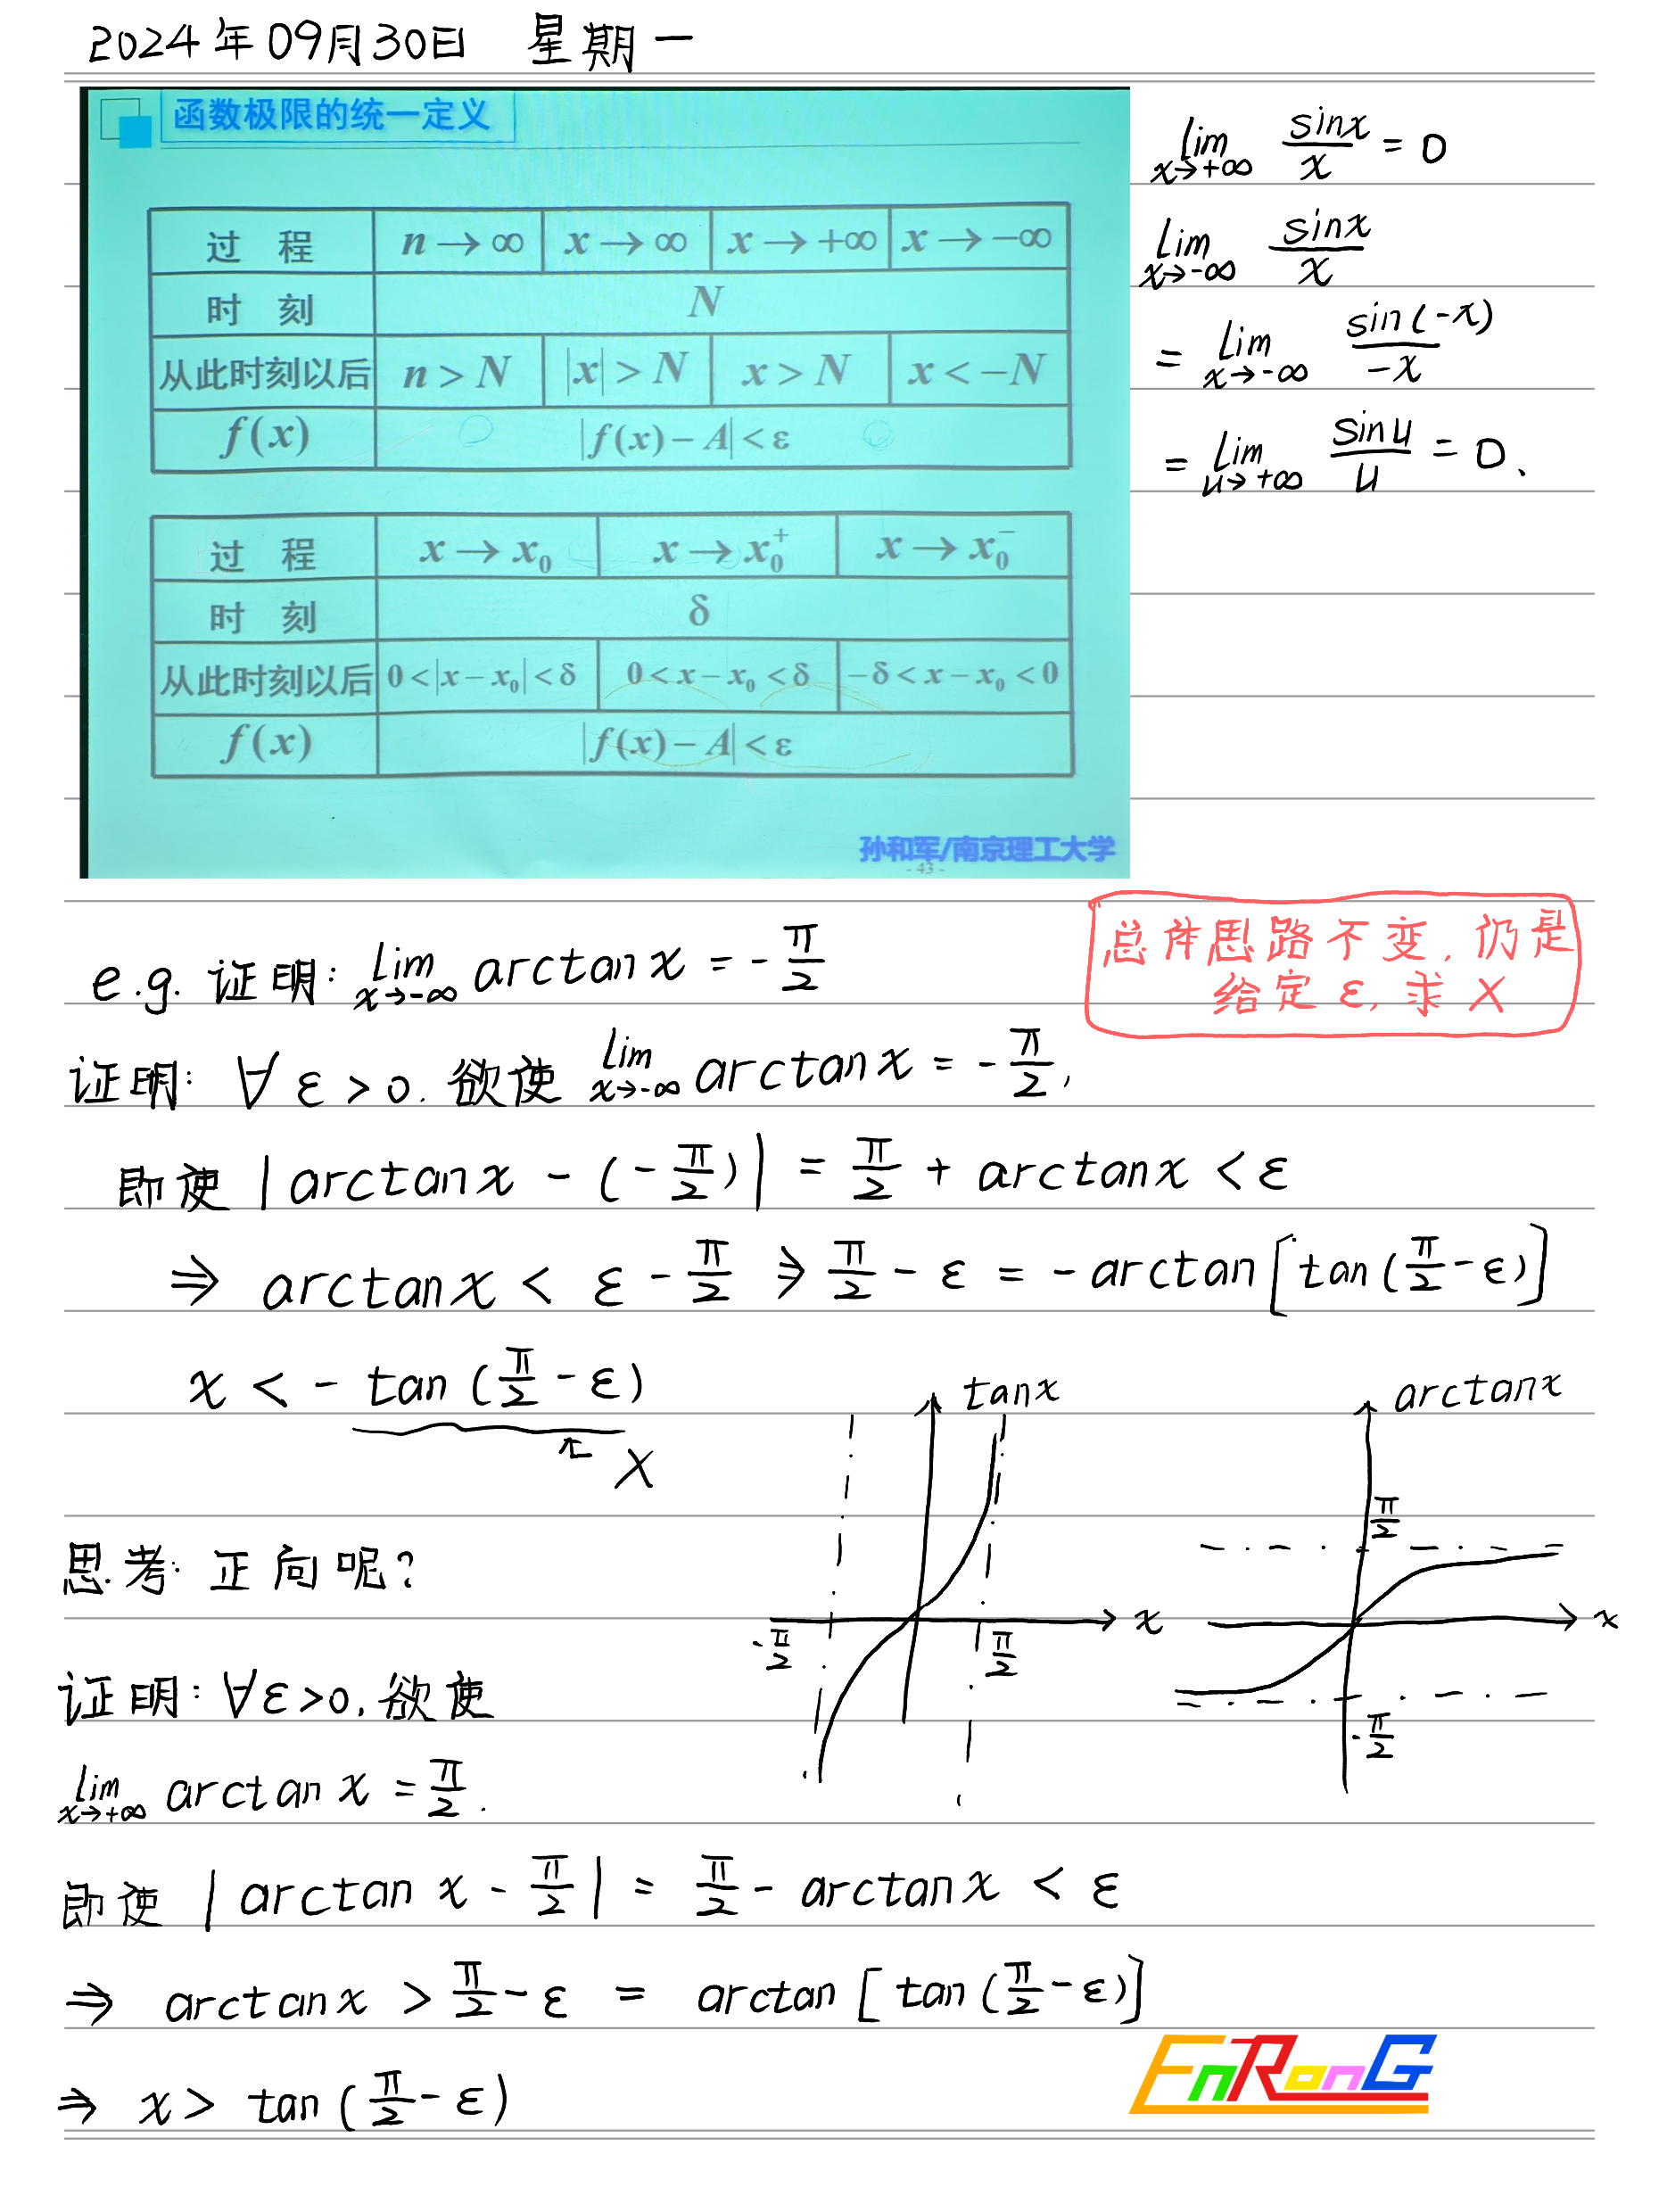 2024年09月30日 星期一
函数极限的统一定义
过 程 n→∞ x→∞ x→+∞ x→-∞
时 刻 N
从此时刻以后 n>N |x|>N x>N x<-N
f(x) |f(x)-A|<ε
过 程 x→x₀ x→x₀⁺ x→x₀⁻
时 刻 δ
从此时刻以后 0<|x-x₀|<δ 0<x-x₀<δ -δ<x-x₀<0
f(x) |f(x)-A|<ε
孙和军/南京理工大学
- 43 -
lim x→+∞ sinx/x = 0
lim x→-∞ sinx/x
= lim x→-∞ sin(-x)/-x
= lim u→+∞ sinu/u = 0、
总体思路不变,仍是
给定ε,求X
e.g. 证明: lim x→-∞ arctanx = -π/2
证明: ∀ε>0. 欲使 lim x→-∞ arctanx = -π/2,
即使 |arctanx - (-π/2)| = π/2 + arctanx < ε
⇒ arctanx < ε - π/2 ⇒ π/2 - ε = -arctan[tan(π/2-ε)]
x < - tan(π/2-ε)
X
tanx
x
-π/2
π/2
arctanx
π/2
x
-π/2
思考: 正向呢?
证明: ∀ε>0, 欲使
lim x→+∞ arctanx = π/2.
即使 |arctanx - π/2| = π/2 - arctanx < ε
⇒ arctanx > π/2 - ε = arctan[tan(π/2-ε)]
⇒ x > tan(π/2-ε)
EnRonG